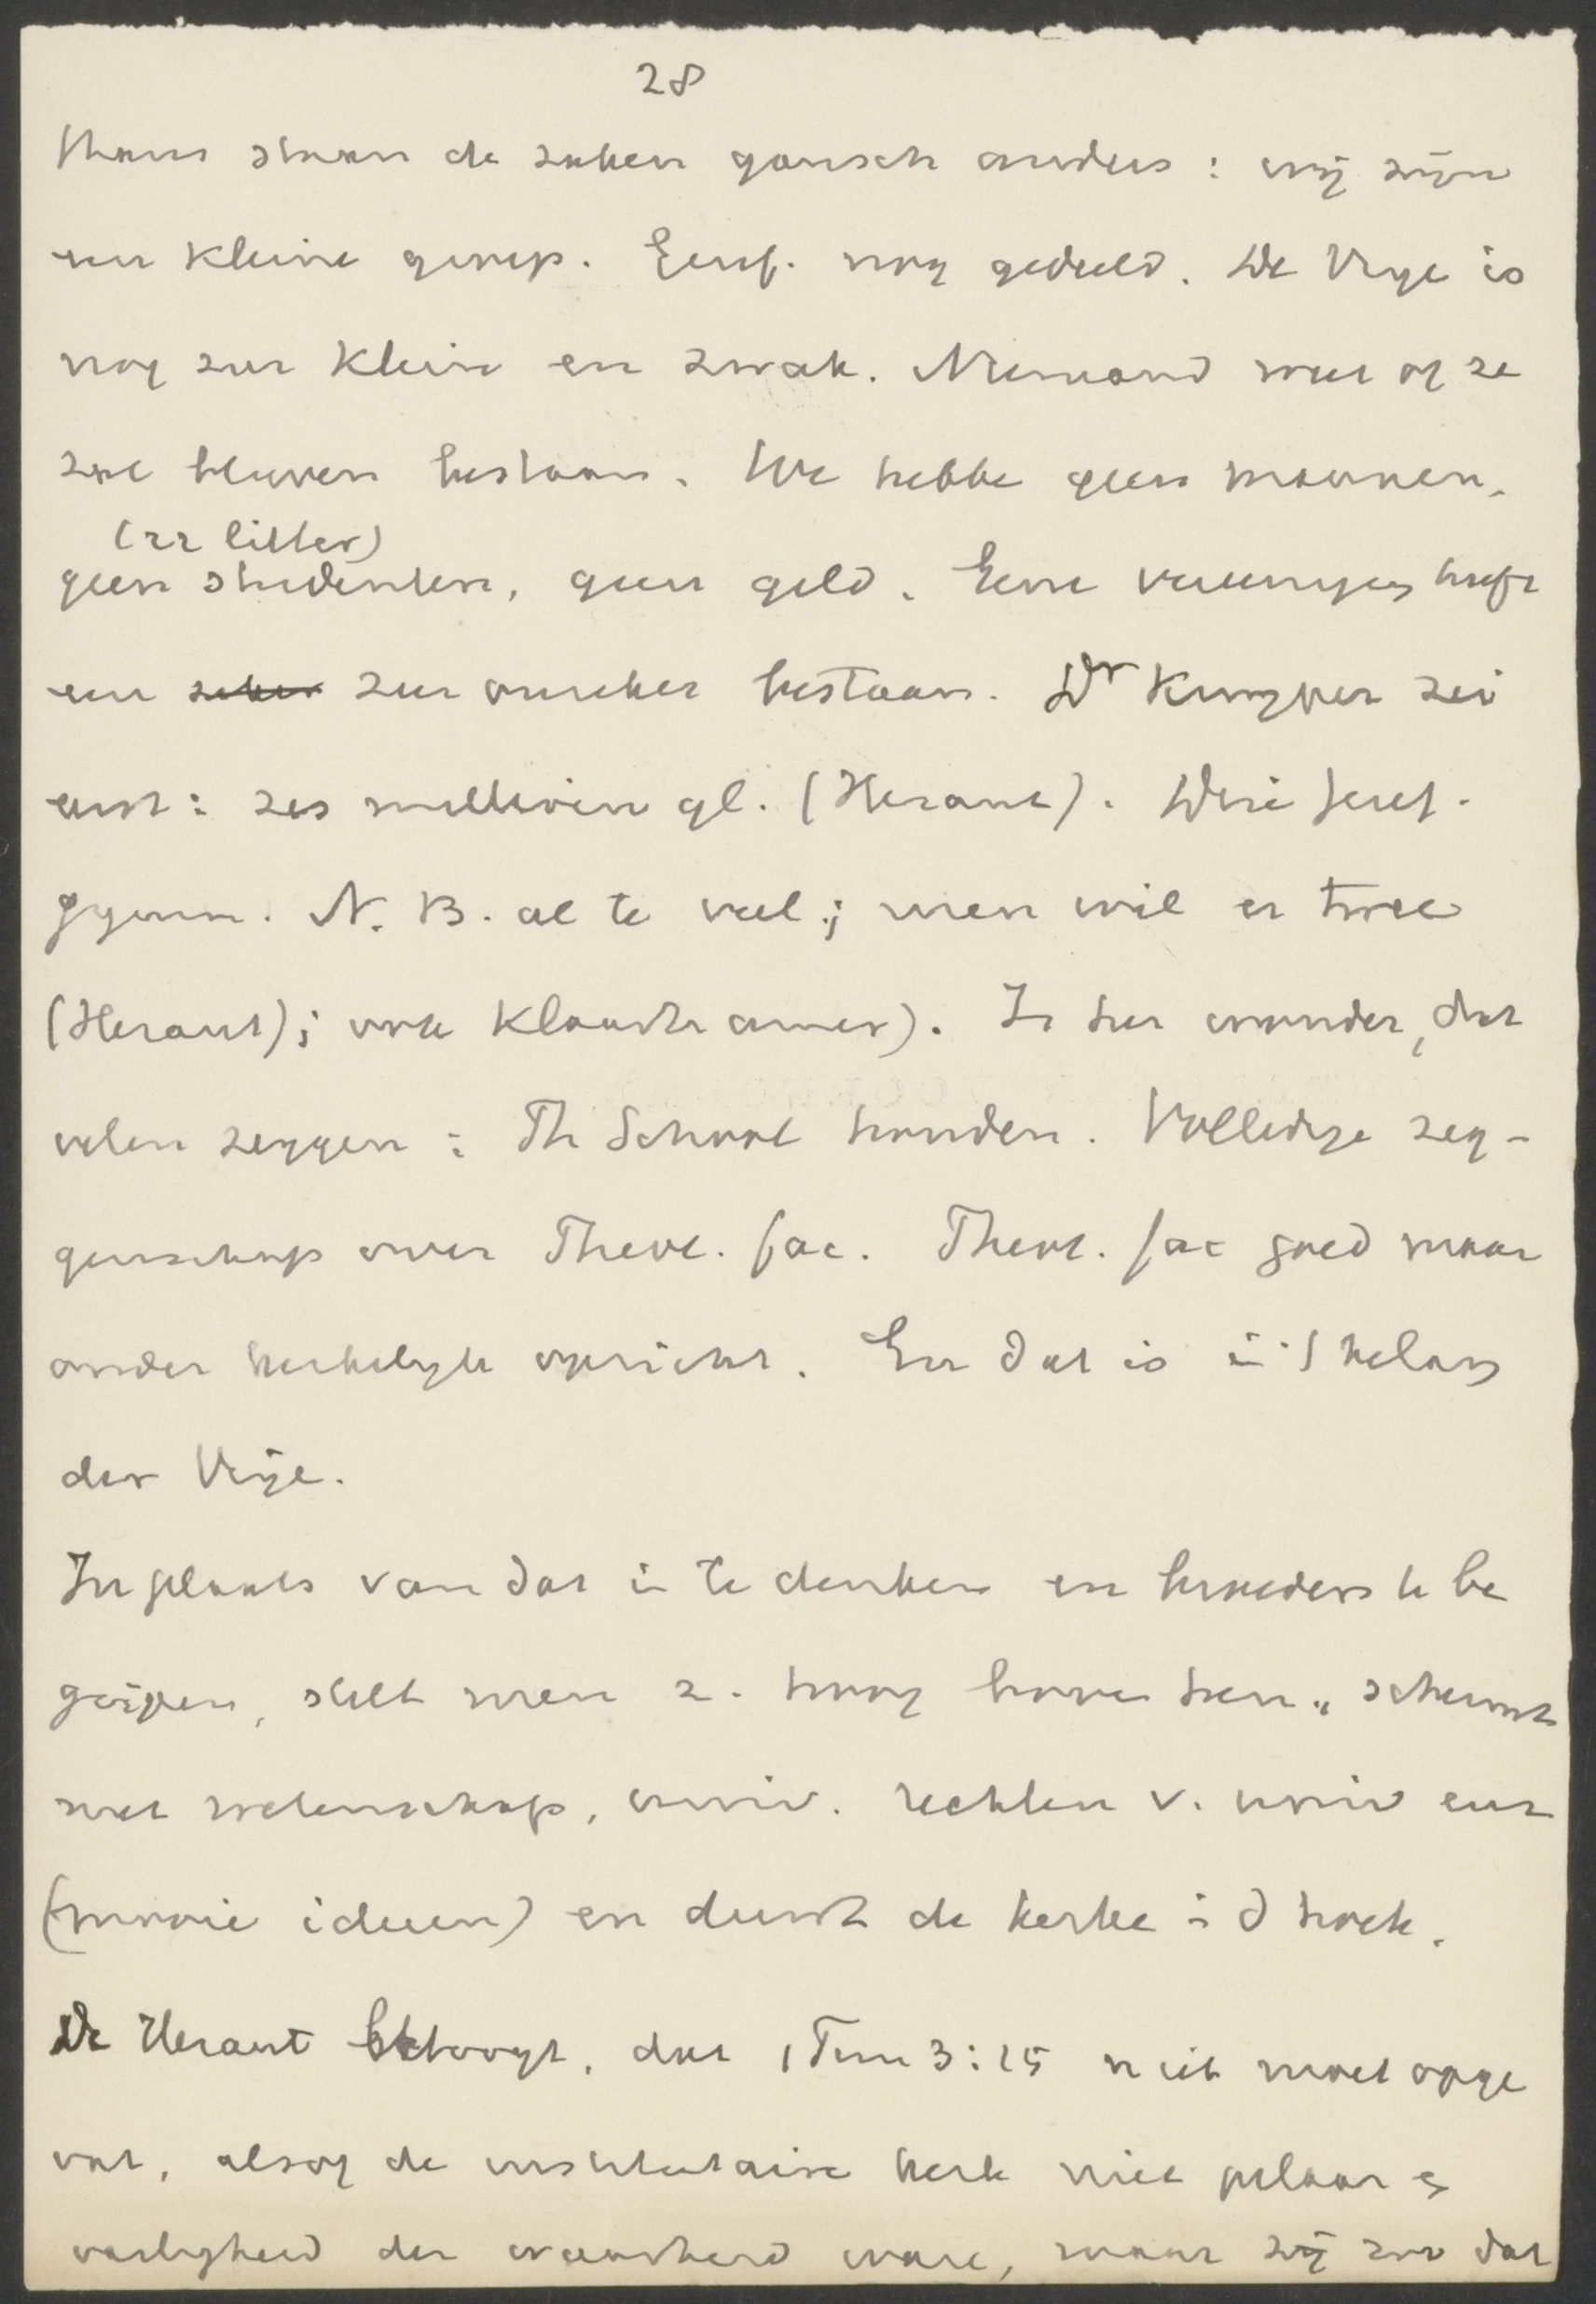 28
thans staan de zaken gansch anders: wij zijn
een kleine groep. Eerst nog geduld. De Vrije is
nog zoo klein en zwak. Niemand weet of ze
zal blijven bestaan. We hebbe geen mannen,
(22 litter)
geen studenten, geen geld. Eene vereenigng heeft
een zeker zeer onzeker bestaan. Dr Kuyper zei
eerst: zes millioen gl. (Heraut). Drie Geref.
gymn. N. B. al te veel; men wil er twee
(Heraut); ook Klaarhamer). Is het wonder, dat
velen zeggen: Th School houden. Volledige zeg-
genschap over Theol. fac. Theol. fac goed maar
onder kerkelijk opzicht. En dat is in 't belang
der Vrije.
In plaats van dat in te denken en broeders te be
grijpen, stelt men z. hoog boven hen, schermt
met wetenschap, univ. rechten v. univ enz
(mooie ideeen) en duwt de kerke i d hoek.
De Heraut betoogt, dat 1 Tim 3:15 niet moet opge
vat, alsof de institutaire kerk niet pilaar en
vastigheid der waarheid ware, maar zij zoo dat